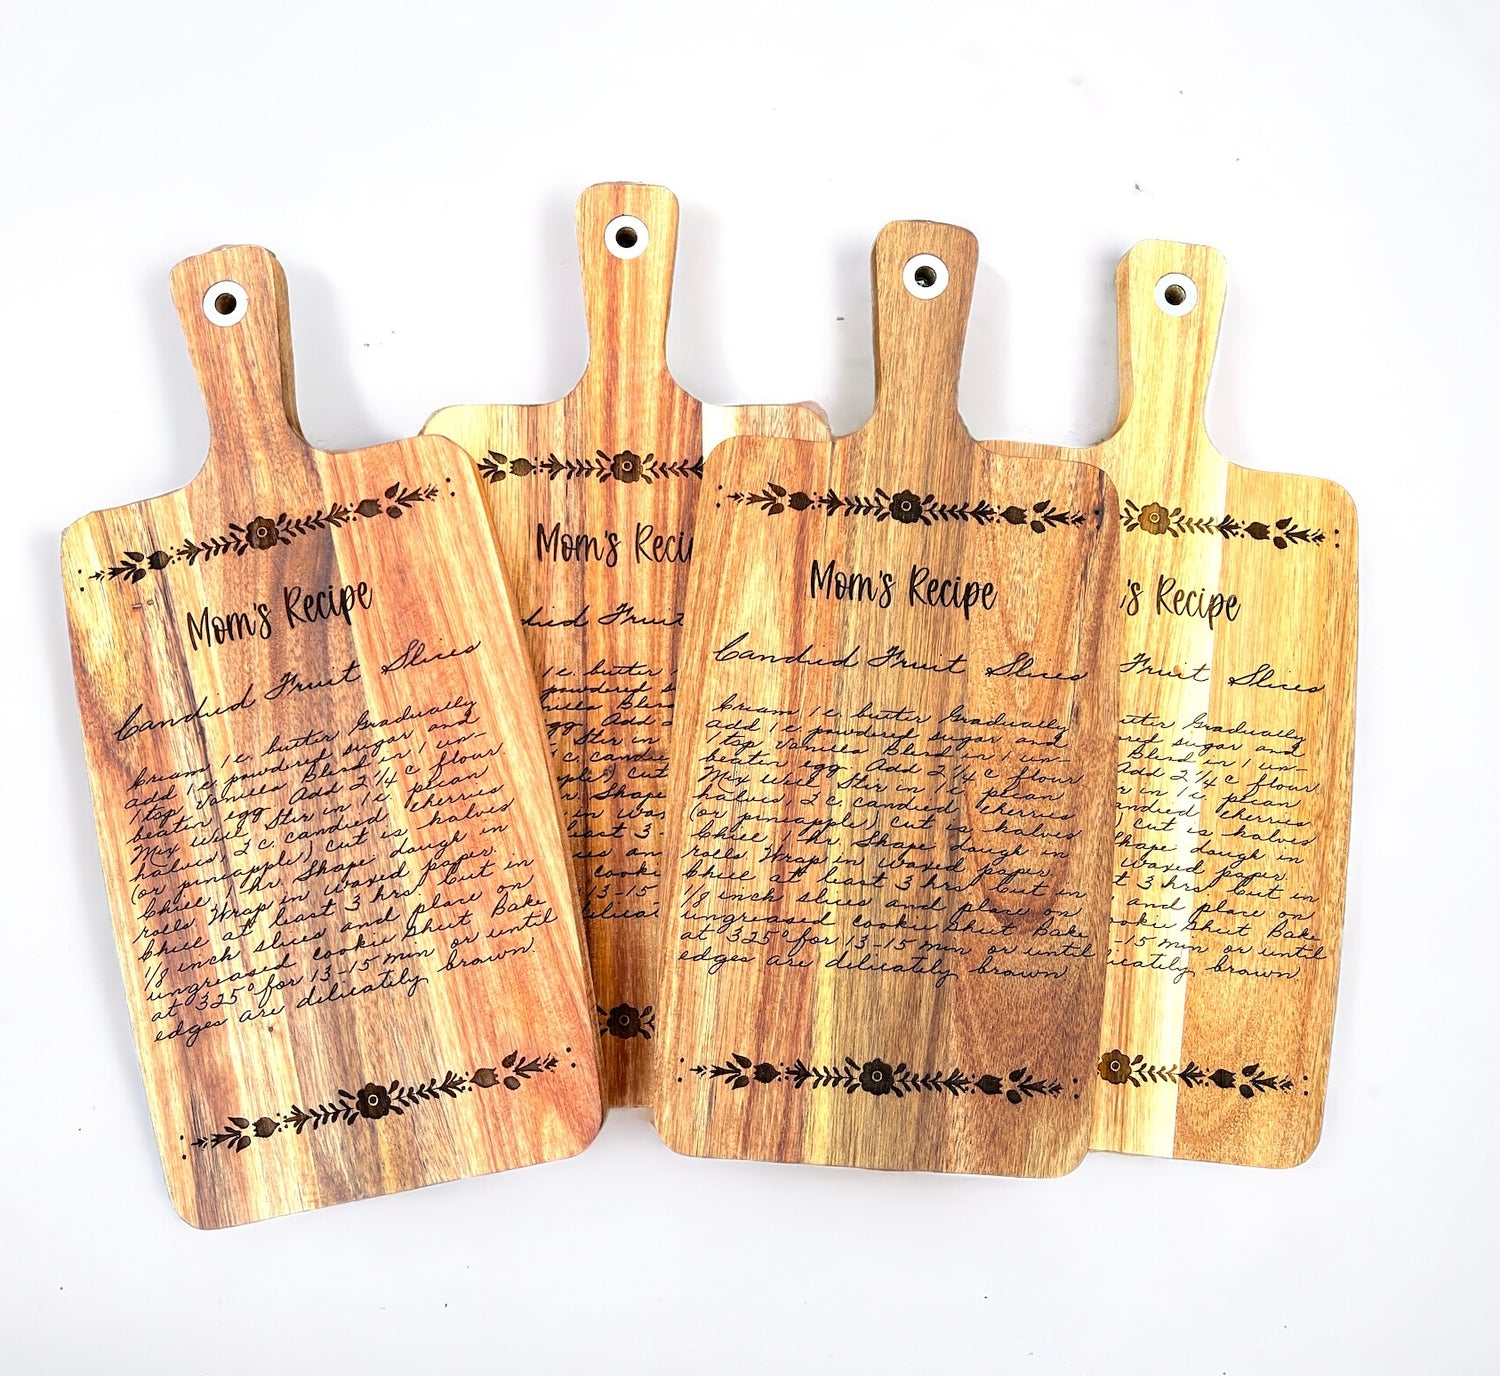 Mom's Recipe
Candied Fruit Slices
Cream 1 c. butter Gradually
add 1 c. powdered sugar and
1 tsp vanilla Blend in 1 un-
beaten egg Add 2 1/4 c flour.
Mix well Stir in 1 c. pecan
halves, 2 c. candied cherries
(or pineapple) cut is halves
Chill 1 hr. Shape dough in
rolls. Wrap in waxed paper.
Chill at least 3 hrs. Cut in
1/8 inch slices and place on
ungreased cookie sheet Bake
at 325° for 13-15 min or until
edges are delicately brown.
Mom's Reci
died Fruit
1 c. butter
powdered s
nilla Blen
gg Add 2
Stir in
c. candie
ple) cut
r. Shape
in wax
least 3
ces an
cooki
13-15
delicat
Mom's Recipe
Candied Fruit Slices
Cream 1 c. butter Gradually
add 1 c powdered sugar and
1 tsp vanilla Blend in 1 un-
beaten egg Add 2 1/4 c flour.
Mix well Stir in 1 c. pecan
halves, 2 c. candied cherries
(or pineapple) cut is halves
Chill 1 hr. Shape dough in
rolls. Wrap in waxed paper.
Chill at least 3 hrs. Cut in
1/8 inch slices and place on
ungreased cookie sheet Bake
at 325° for 13-15 min or until
edges are delicately brown.
's Recipe
Fruit Slices
utter Gradually
ered sugar and
Blend in 1 un-
Add 2 1/4 c flour.
r in 1 c. pecan
andied cherries
cut is halves
hape dough in
waxed paper.
t 3 hrs. Cut in
and place on
ookie sheet Bake
-15 min or until
licately brown.